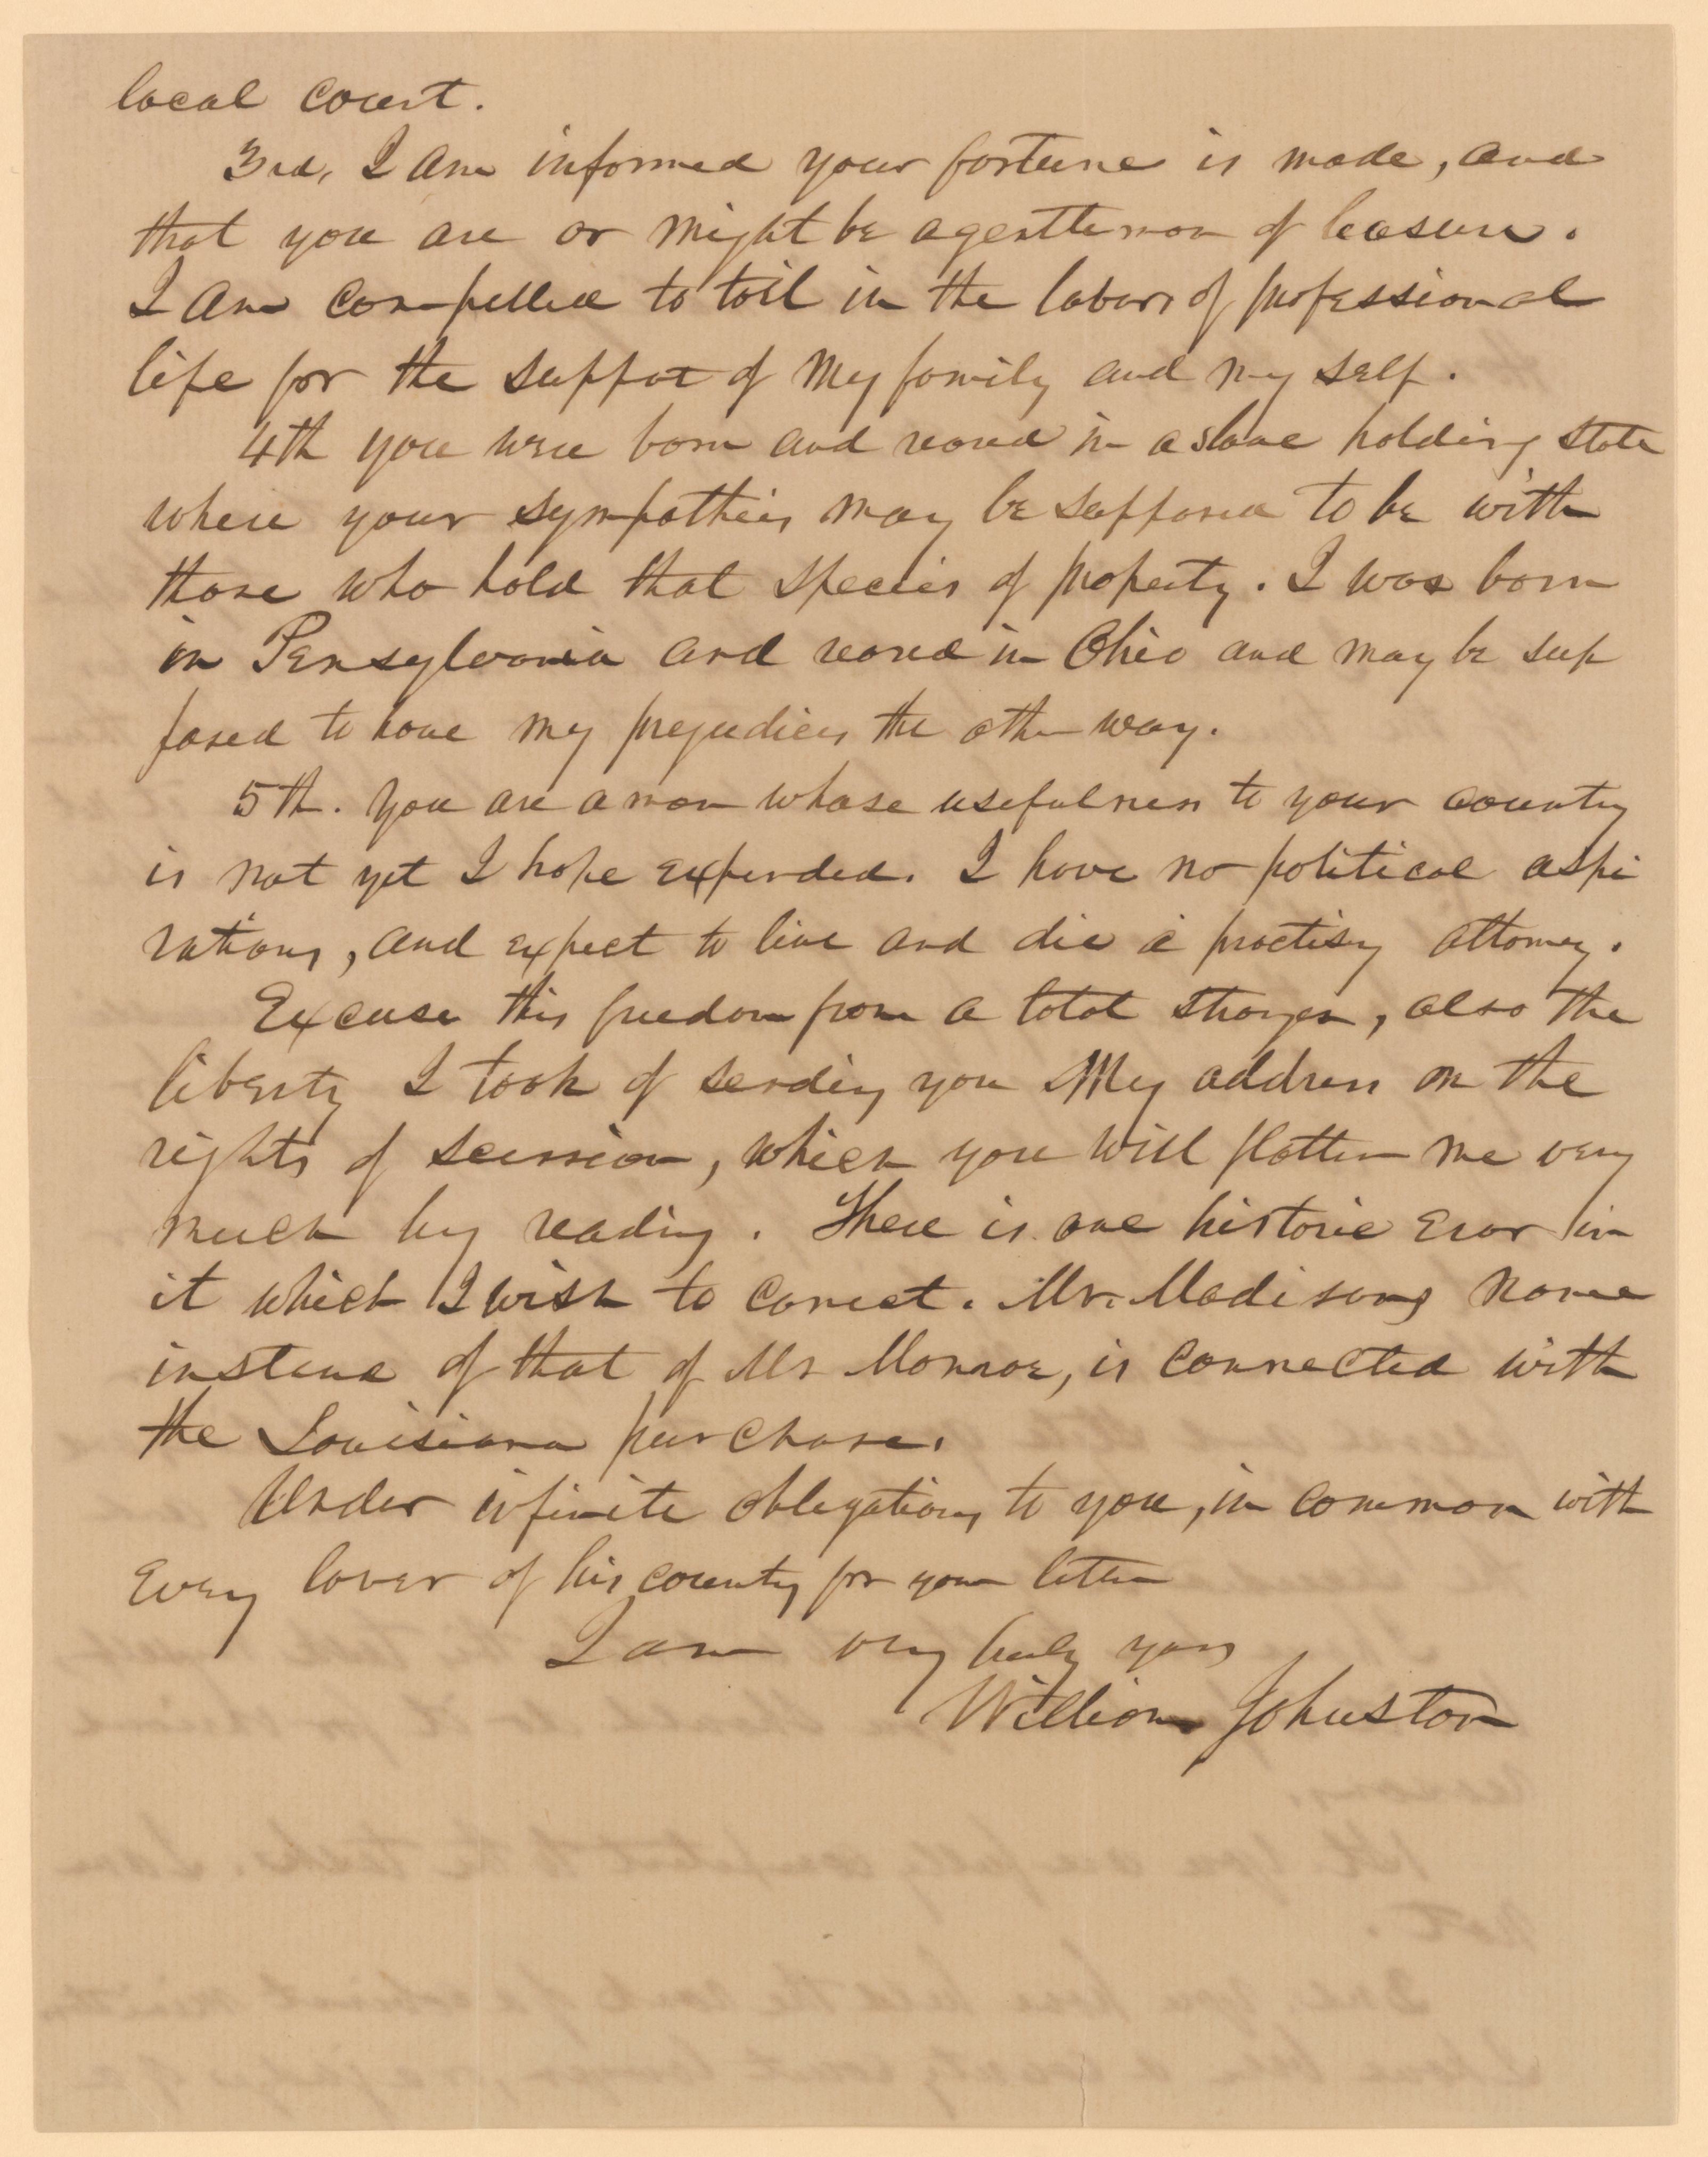 local court.
3rd, I am informed your fortune is made, and
that you are or might be a gentleman of leasure.
I am compelled to toil in the labors of professional
life for the suppot of my family and my self.
4th you were born and reared in a slave holding state
where your sympathies may be supposed to be with
those who hold that species of property. I was born
in Pensylvania and reared in Ohio and may be sup
posed to have my prejudices the other way.
5th. You are a man whose usefulness to your country
is not yet I hope expended. I have no political aspi
rations, and expect to live and die a practising attorney.
Excuse this freedom from a total stranger, also the
liberty I took of sending you my address on the
rights of secession, which you will flatter me very
much by reading. There is one historic eror in
it which I wish to correct. Mr. Madisons name
instead of that of Mr Monroe, is connected with
the Louisiana purchase.
Under infinite obligations to you, in common with
every lover of his country for your letter
I am very truly yours
William Johnston